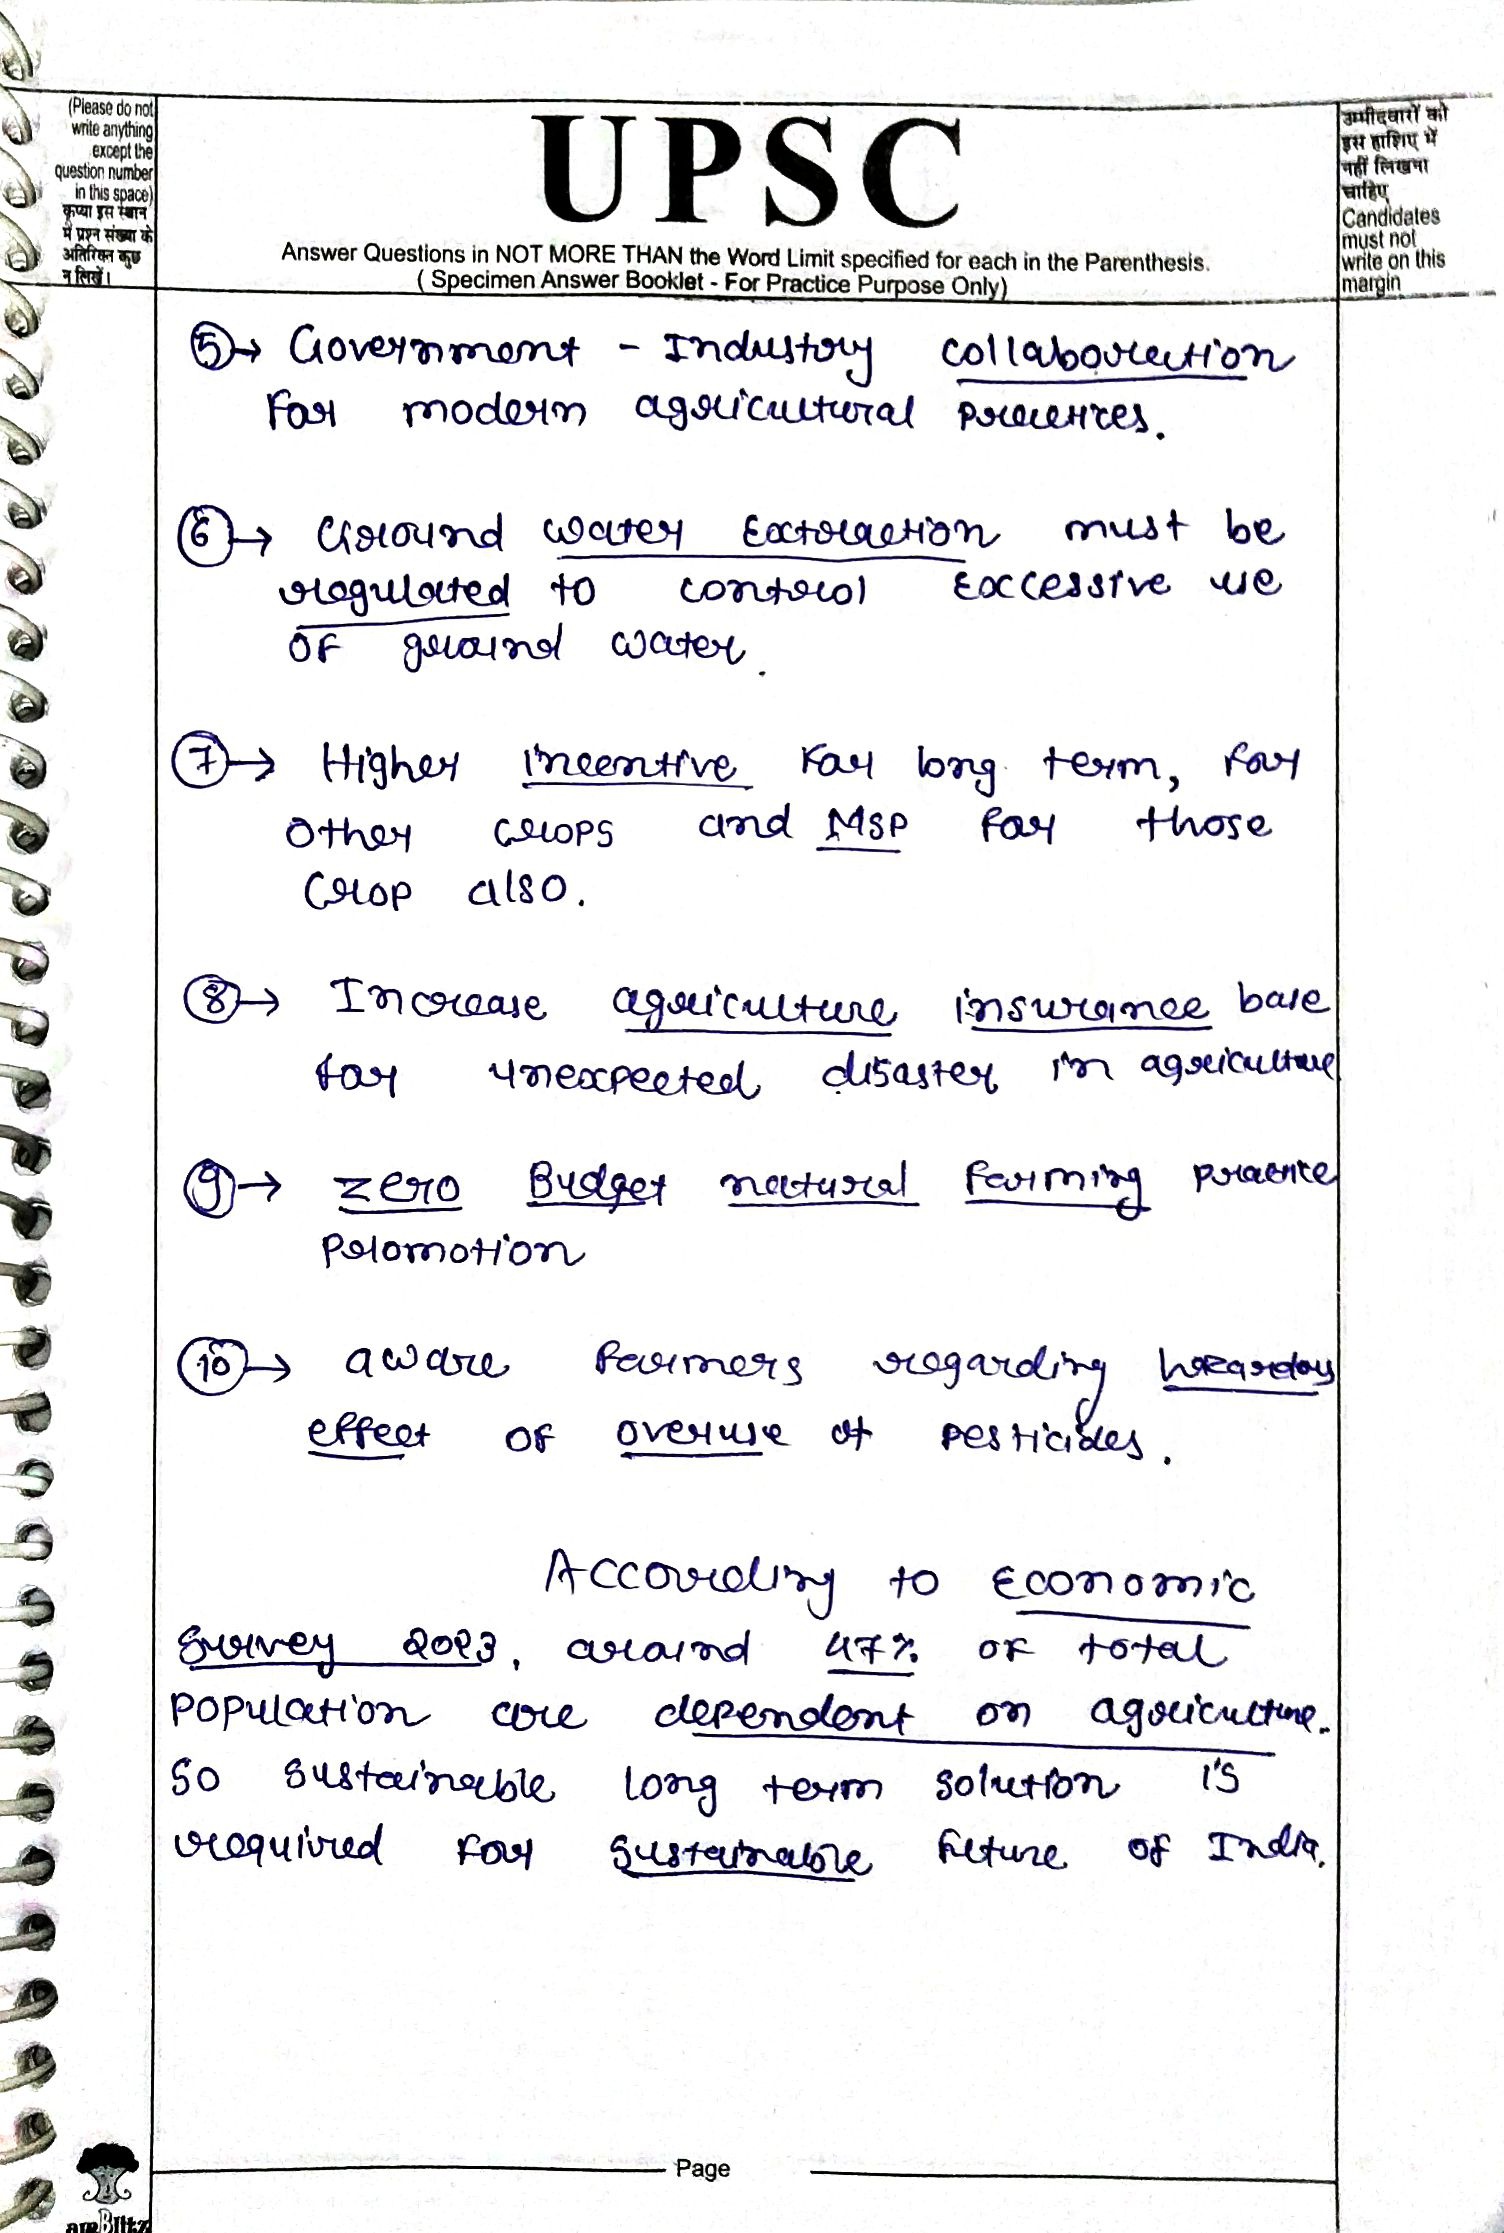 (Please do not
write anything
except the
question number
in this space)
कृप्या इस स्थान
में प्रश्न संख्या के
अतिरिक्त कुछ
न लिखें।
UPSC
Answer Questions in NOT MORE THAN the Word Limit specified for each in the Parenthesis.
( Specimen Answer Booklet - For Practice Purpose Only)
उम्मीदवारों को
इस हाशिए में
नहीं लिखना
चाहिए
Candidates
must not
write on this
margin
5→ Government - Industry collaboration
For modern agricultural practices.
6→ Ground water Extraction must be
regulated to control Excessive use
OF ground water.
7→ Higher incentive For long term, for
other crops and MSP for those
Crop also.
8→ Increase agriculture insurance base
for unexpected disaster in agriculture
9→ zero Budget natural farming practice
Promotion
10→ aware farmers regarding hazardous
effect OF overuse of pesticides.
According to Economic
Survey 2023, around 47% OF total
Population are dependent on agriculture.
So sustainable long term solution is
required For sustainable future of India.
Page